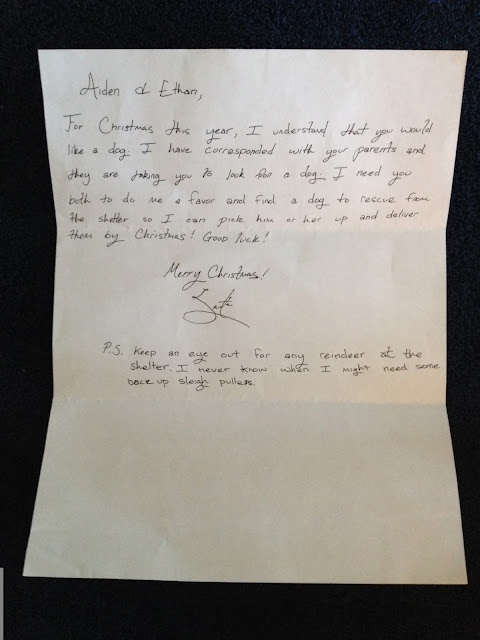 Aiden & Ethan,
For Christmas this year, I understand that you would
like a dog. I have corresponded with your parents and
they are taking you to look for a dog. I need you
both to do me a favor and find a dog to rescue from
the shelter so I can pick him or her up and deliver
them by Christmas! Good luck!
Merry Christmas!
Santa
P.S. Keep an eye out for any reindeer at the
shelter. I never know when I might need some
back up sleigh pullers.